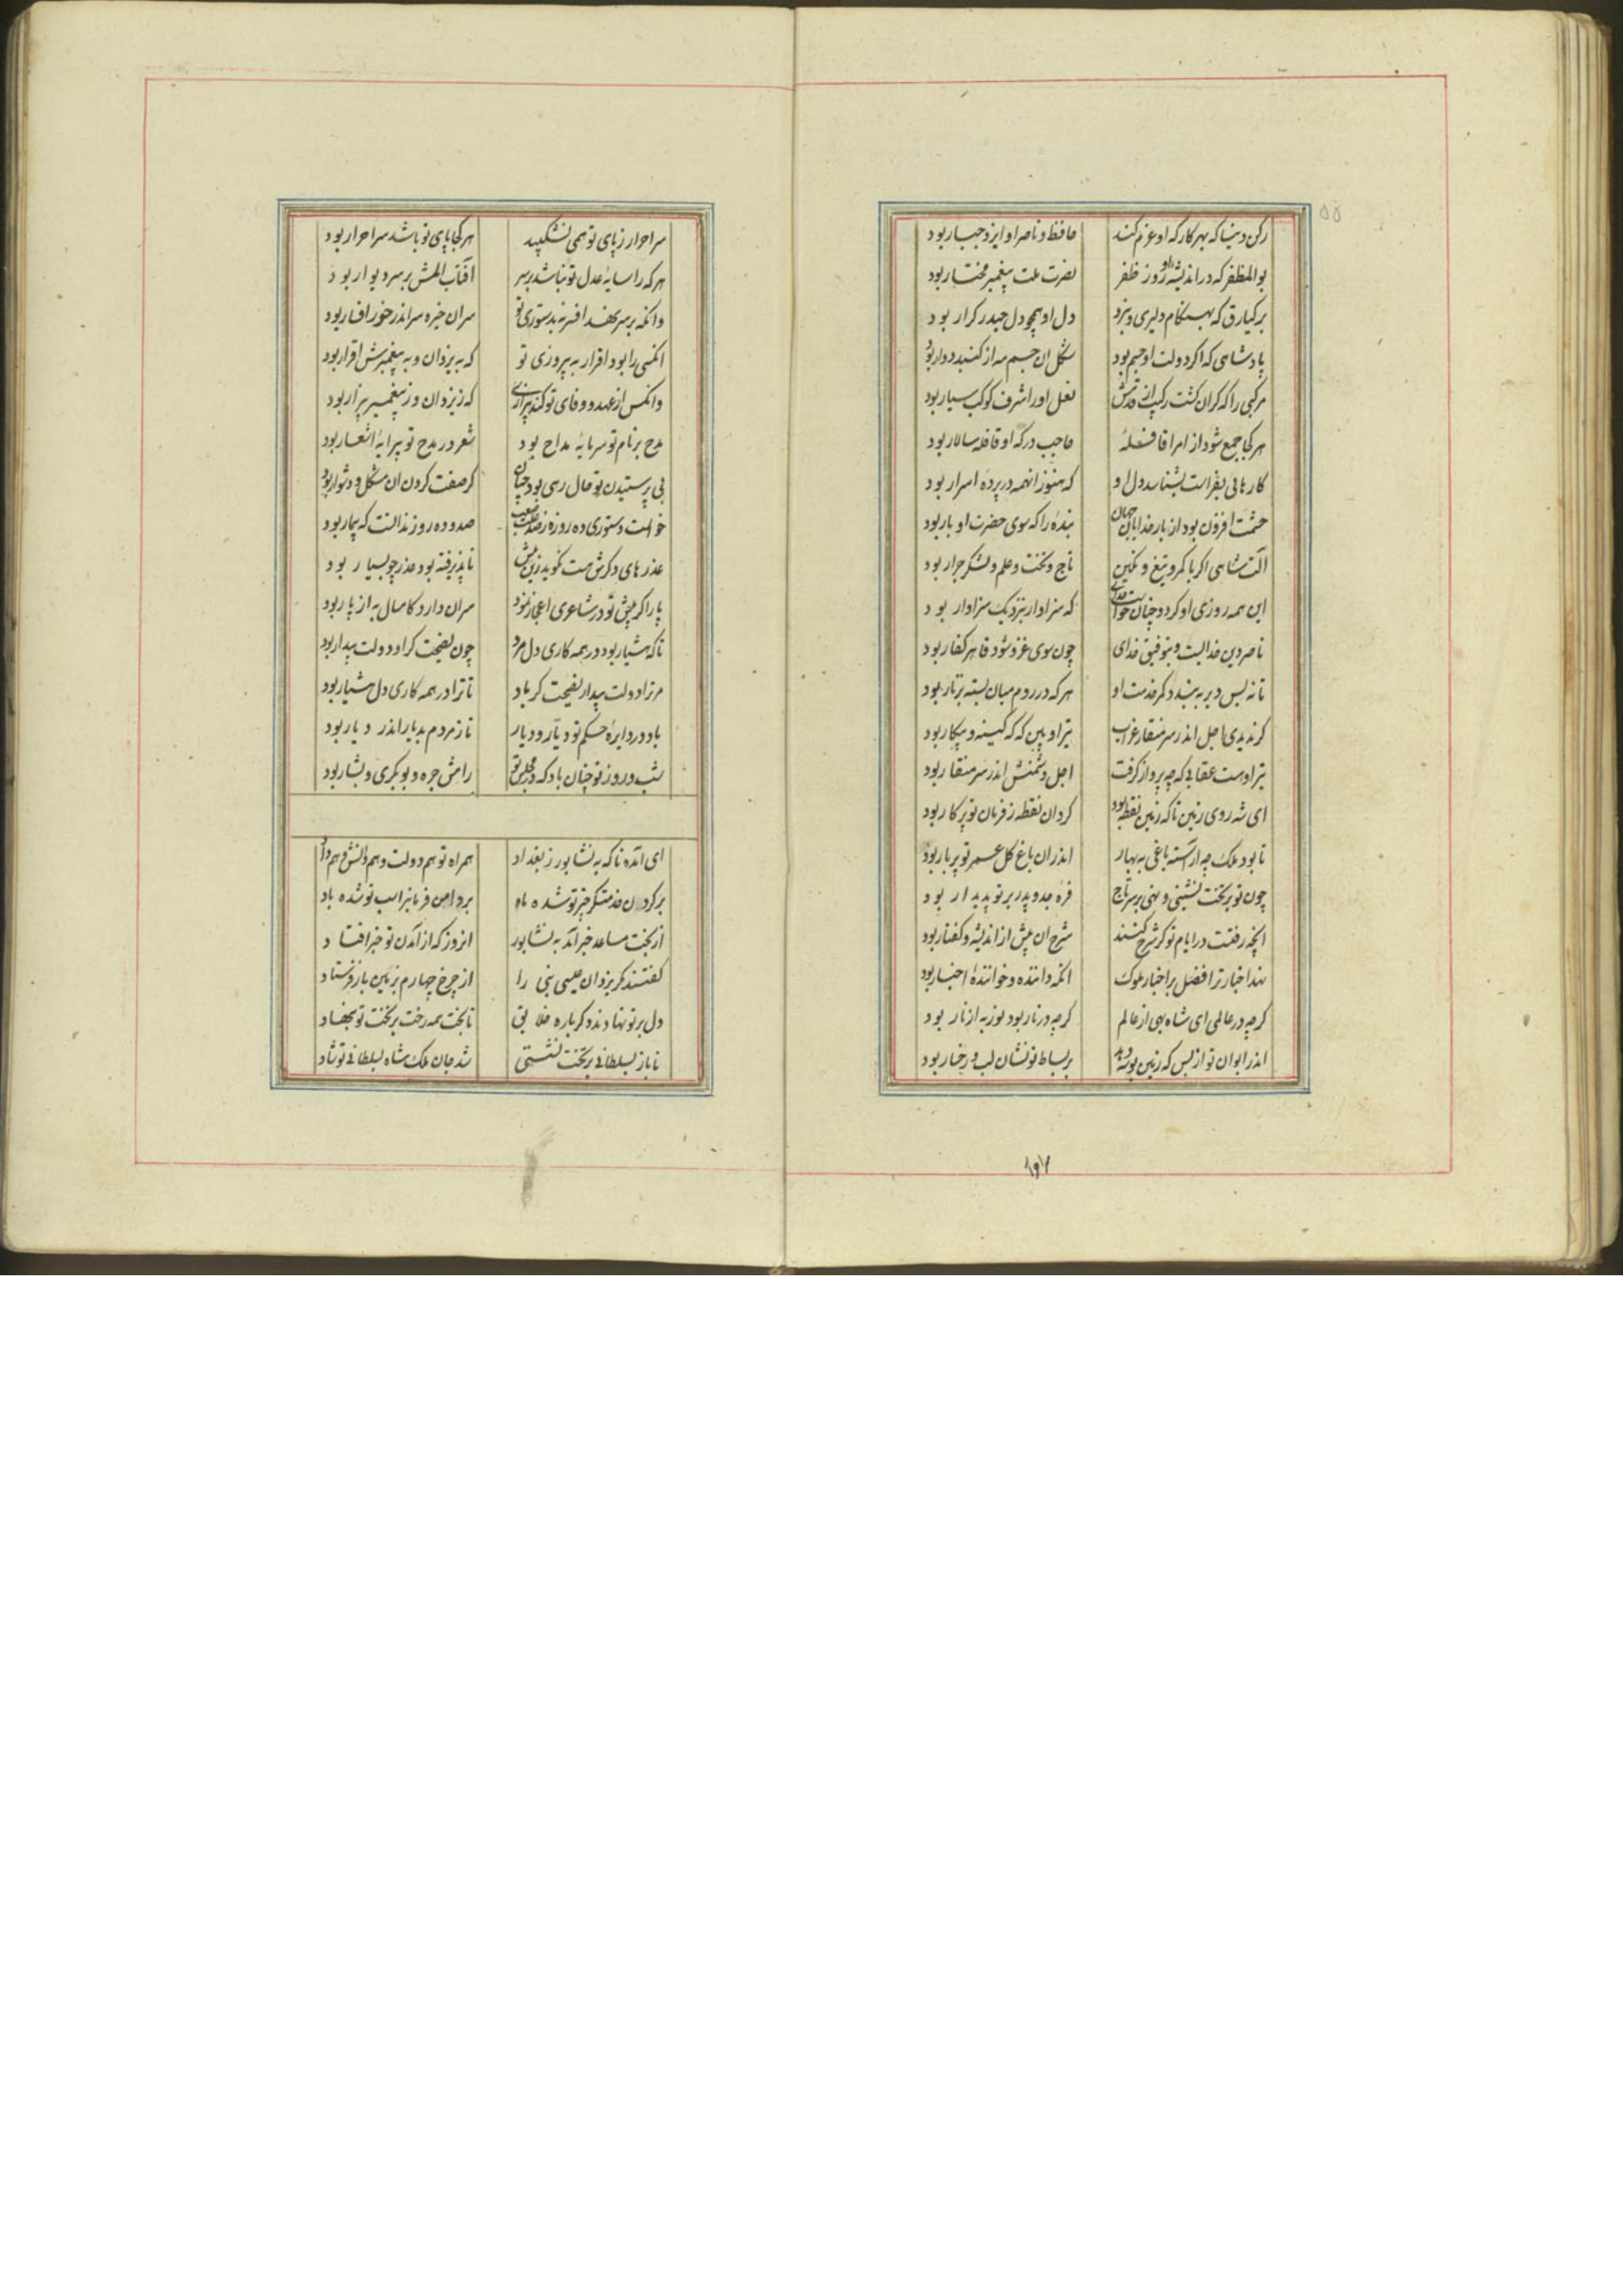 ۵۵
رکن دنیا که بهر کار که او عزم کند حافظ و ناصر او ایزد جبار بود
بوالمظفر که در اندیشه او روز ظفر نصرت ملت پیغمبر مختار بود
برکیارق که بهنگام دلیری و نبرد دل او همچو دل حیدر کرار بود
پادشاهی که اکر دولت او جسم بود شکل ان جسم مه از کنبد دوار بود
مرکبی را که کران کشت رکیب از قدمش نعل او را شرف کوکب سیار بود
هر کجا جمع شود از امرا قافلهٔ حاجب درکه او قافله سالار بود
کارهائی بفراست بشناسد دل او که هنوز انهمه در پردهٔ اسرار بود
حشمت افزون بود از بار خدایان جهان بندهٔ را که سوی حضرت او بار بود
آلت شاهی اکر با کمر و تیغ و نکین تاج و تخت و علم و لشکر جرار بود
این همه روزی او کرد و چنان خواست خدای که سزاوار بنزدیک سزاوار بود
ناصر دین خدایست و بتوفیق خدای چون سوی غزو شود قاهر کفار بود
تا نه بس دیر به بندد کمر خدمت او هر که در روم میان بسته بزنار بود
کر ندیدی اجل اندر سر منقار غراب تیر او بین که که کینه و پیکار بود
تیر اوست عقابی که چو پرواز کرفت اجل دشمنش اندر سر منقار بود
ای شه روی زمین تا که زمین نقطه بود کرد ان نقطه ز فرمان تو پرکار بود
تا بود ملک چو اراسته باغی به بهار اندران باغ کل عمر تو پربار بود
چون تو بر تخت نشینی و نهی بر سر تاج فره جد و پدر بر تو پدیدار بود
انچه رفتت در ایام تو کر شرح کنند شرح ان بیش از اندیشه و کفتار بود
نهد اخبار ترا فضل بر اخبار ملوک انکه داننده و خوانندهٔ اخبار بود
کرچه در عالمی ای شاه بهی از عالم کرچه در نار بود نور به از نار بود
اندر ایوان تو از بس که زمین بوسه دهد بر بساط تو نشان لب و رخسار بود
سر احرار ز پای تو همی نشکیبد هر کجا پای تو باشد سر احرار بود
هر که را سایهٔ عدل تو نباشد بر سر آفتاب المش بر سر دیوار بود
وانکه بر سر نهد افسر نه بدستوری تو سر ان خیره سر اندر خور افسار بود
انکسی را بود اقرار به پیروزی تو که به یزدان و به پیغمبرش اقرار بود
وانکس از عهد و وفای تو کند بیزاری که ز یزدان و ز پیغمبر بیزار بود
مدح بر نام تو سرمایه مداح بود شعر در مدح تو پیرایهٔ اشعار بود
بی پرستیدن تو حال رهی بود چنان کر صفت کردن ان مشکل و دشوار بود
خواست دستوری ده روزه ز صد و ده روز ندانست که بیمار بود
عذرهای دکرش هست نکوید زین بیش ناپذیرفته بود عذر چو بسیار بود
پار اکر پیش تو در شاعری اعجاز نمود سر ان دارد کامسال به از پار بود
تا که هشیار بود در همه کاری دل مرد چون نصیحت کر او دولت بیدار بود
مر ترا دولت بیدار نصیحت کر باد تا ترا در همه کاری دل هشیار بود
باد در دایرهٔ حکم تو دیار و دیار تا ز مردم بدیار اندر دیار بود
شب و روز تو چنان باد که در مجلس تو رامش جره و بوبکری و بشار بود
ای آمده ناکه به نشابور ز بغداد همراه تو هم دولت و هم دانش و هم داد
بر کردن خدمتکر خیر تو شده باد بر دامن فرمانبر اسب تو شده باد
از بخت مساعد خبر آمد به نشابور انروز که از آمدن تو خبر افتاد
کفتند که یزدان عیسی نبی را از چرخ چهارم بزمین باز فرستاد
دل بر تو نهادند دکر باره خلایق تا بخت همه رخت بر تخت تو بنهاد
تا باز بسلطانی بر تخت نشستی شد جان ملک شاه بسلطانی تو شاد